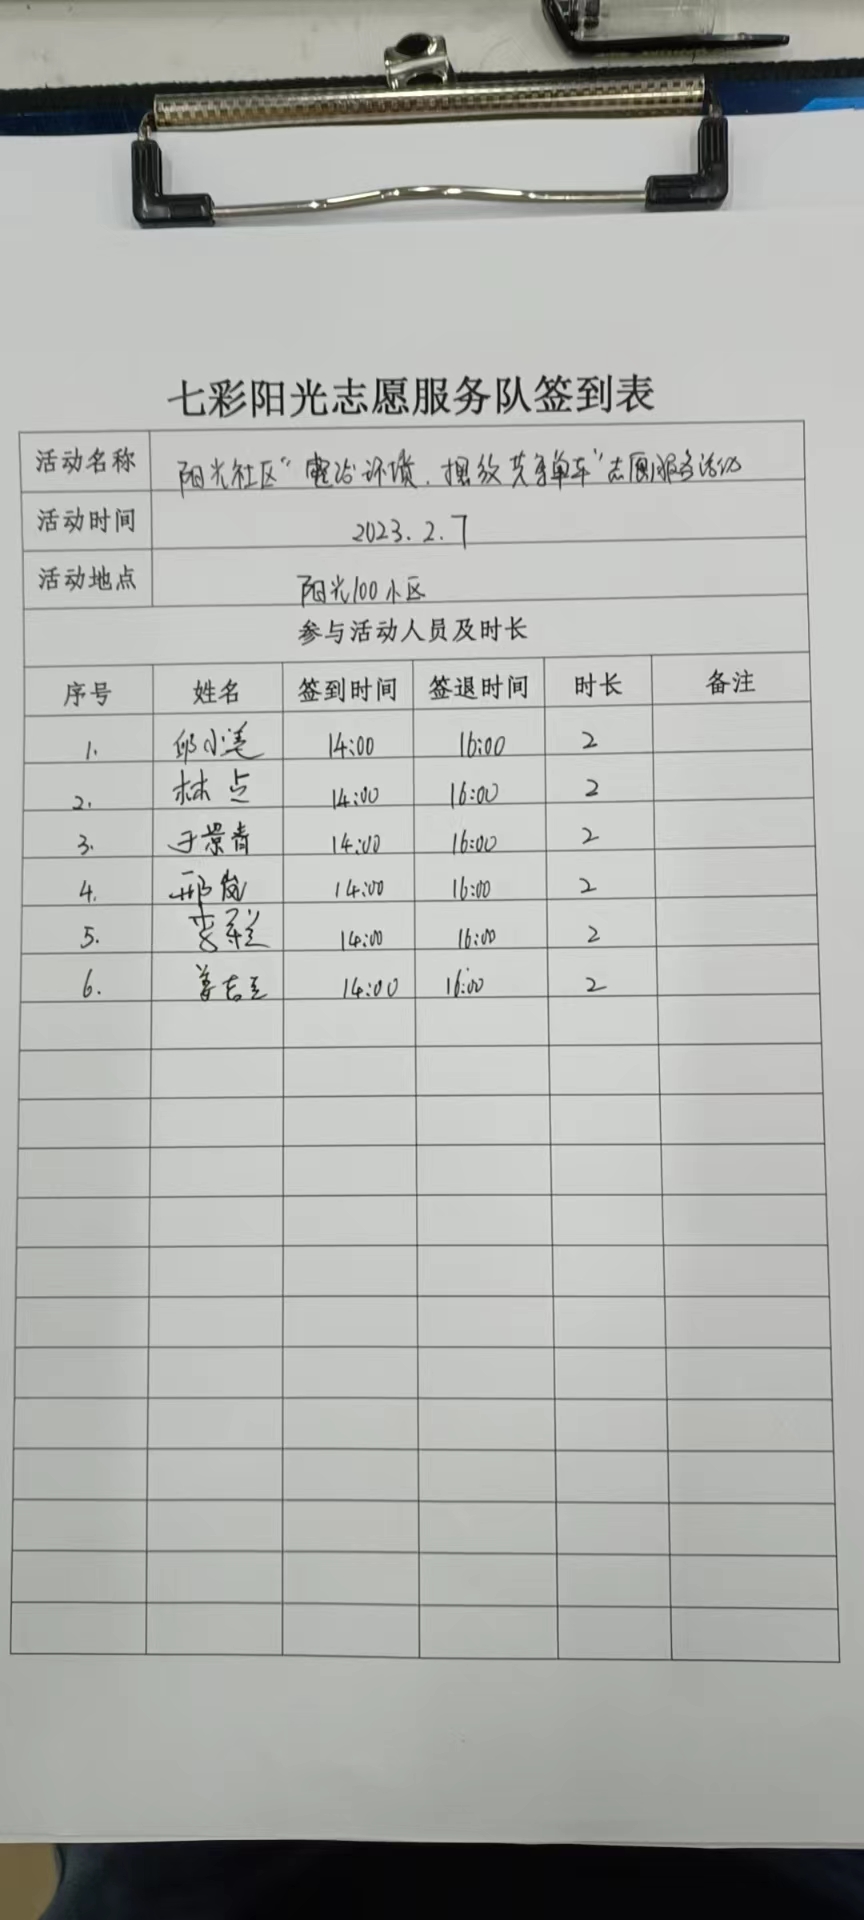 七彩阳光志愿服务队签到表
活动名称 阳光社区“ 环境,摆放共享单车”志愿服务活动
活动时间 2023.2.7
活动地点 阳光100小区
参与活动人员及时长
序号 姓名 签到时间 签退时间 时长 备注
1. 邱小 14:00 16:00 2
2. 林 14:00 16:00 2
3. 于景青 14:00 16:00 2
4. 邢岚 14:00 16:00 2
5. 14:00 16:00 2
6. 姜志 14:00 16:00 2